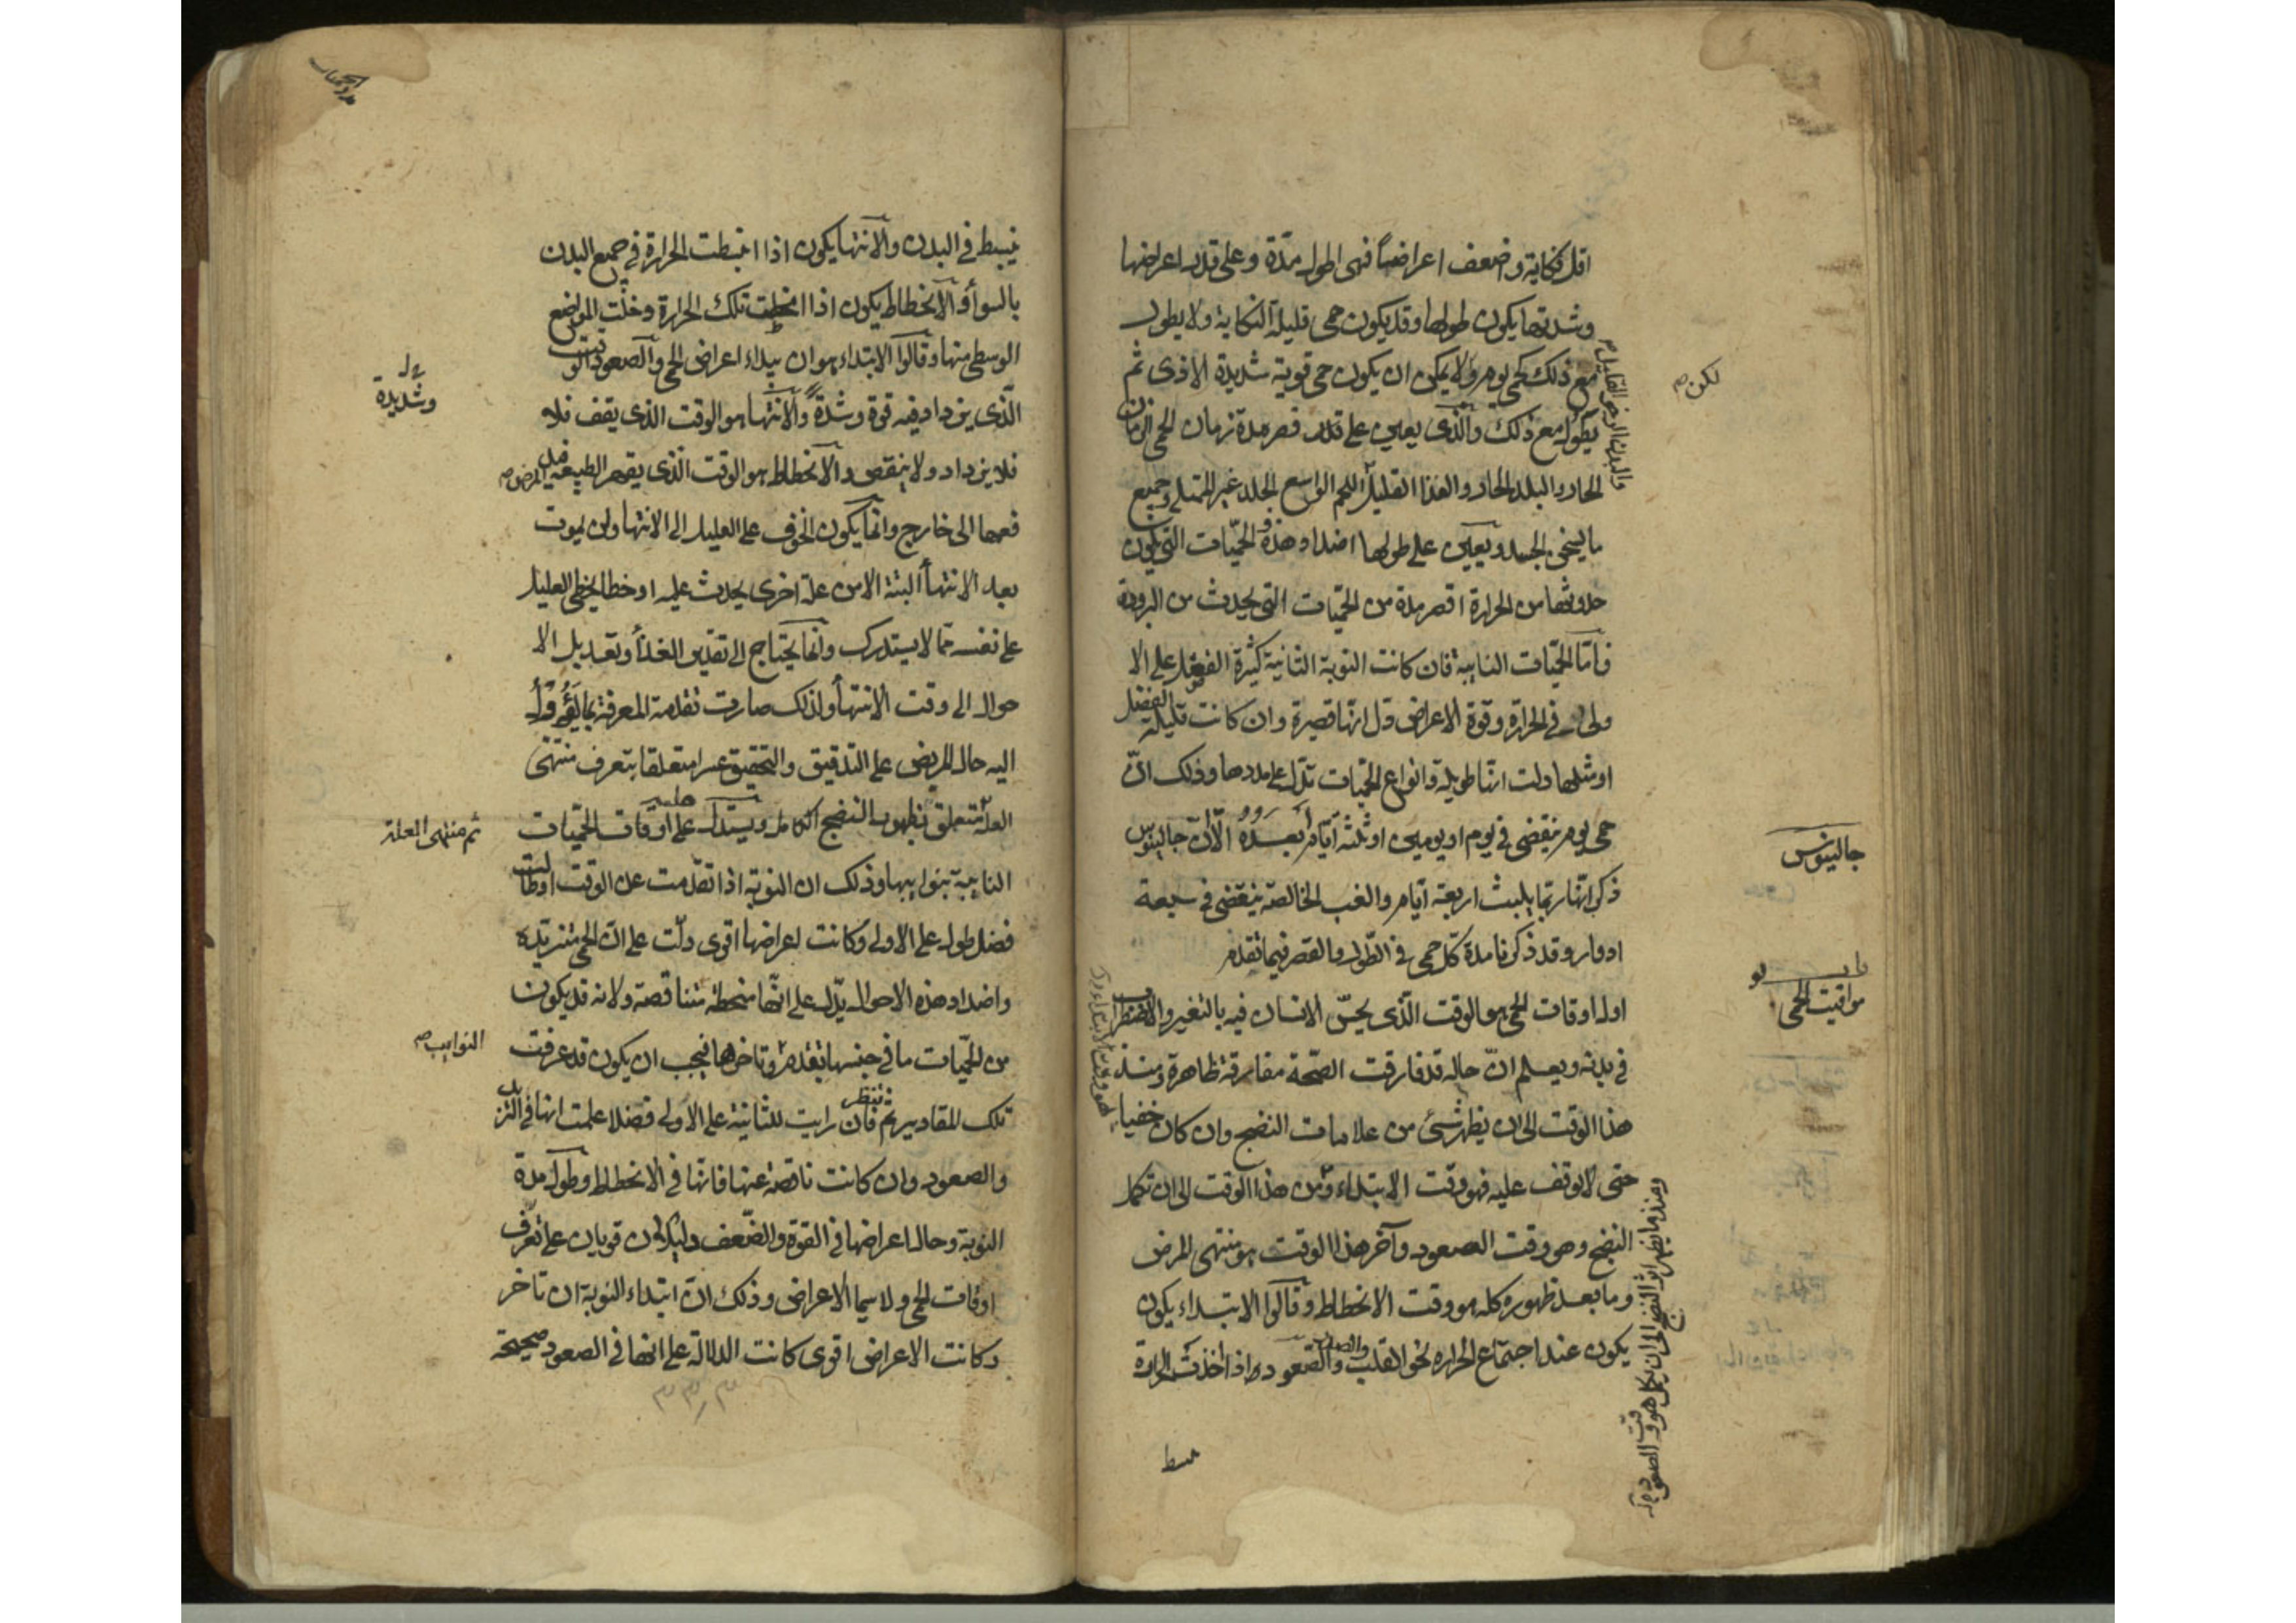 اقل نكاية واضعف اعراضاً فهى اطول مدّة وعلى قدر اعراضها
وشدتها يكون طولها وقد يكون حمى قليلة النكاية ولا يطول
مع ذلك كحمى يوم ولا يمكن ان يكون حمى قوية شديدة الاذى ثم
يطول مع ذلك والّذى يعين على قدر قصر مدة زمان الحمى الزمان
الحار والبلد الحار والغذا القليل اللحم الواسع الجلد غير الممتلى وجميع
ما يسخن الجسد ويعين على طولها اضداد هذه والحمّيات التى يكون
حدوثها من الحرارة اقصر مدة من الحمّيات التى يحدث من البرودة
فامّا الحمّيات النايبة فان كانت النوبة الثانية كثيرة الفضل على الا
ولى فى الحرارة وقوة الاعراض دل انّها قصيرة وان كانت قليلة الفضل
او مثلها دلت انها طويلة وانواع الحميات تدّل على مددها وذلك انّ
حمى يوم ينقضى فى يوم او يومين او ثلثة ايّام بعده الّا انّ جالينوس
ذكر انّها ربّما يلبث اربعة ايّام والغب الخالصة ينقضى فى سبعة
ادوار وقد ذكرنا مدة كل حمى فى الطول والقصر فيما تقدم
اول اوقات الحمى هو الوقت الّذى يحسّ الانسان فيه بالتغير والاضطراب
فى بدنه ويعلم انّ حاله قد فارقت الصّحة مفارقة ظاهرة ومنذ
هذا الوقت الى ان يظهر شئ من علامات النضج وان كان خفيا
حتى لا يوقف عليه فهو وقت الابتداء ومن هذا الوقت الى ان تكمل
النضج وهو وقت الصعود وآخر هذا الوقت هو منتهى المرض
وما بعد ظهوره كله هو وقت الانحطاط وقالوا الابتداء يكون
يكون عند اجتماع الحراره نحو القلب والصعود اذا اخذت الحرارة
لكن صح
والبدن الرخو القليل
جالينوس
باب يو
مواقيت الحمى
هو وقت الابتداء
ومنذ ما يظهر اثر النضج الى ان يكمل هو وقت الصعود
ينبسط فى البدن والانتها يكون اذا انبسطت الحرارة فى جميع البدن
بالسوا والانحطاط يكون اذا انحطت تلك الحرارة وخلت المواضع
الوسطى منها وقالوا الابتداء هو ان يبداء اعراض الحمى والصعود الوقت
الّذى يزداد فيه قوة وشدة والانتها هو الوقت الذى يقف فلا
فلا يزداد ولا ينقص والانحطاط هو الوقت الّذى يقهر الطبيعة فيه المرض صح
فدفعها الى خارج وانما يكون الخوف على العليل الى الانتها ولن يموت
بعد الانتها البتة الا من علة اخرى يحدث عليه او خطا يخطى العليل
على نفسه مما لا يستدرك وانما يحتاج الى تقدير الغذا وتعديل الا
حوال الى وقت الانتها ولذلك صارت تقدمة المعرفة بما يَؤُولُ
اليه حال المريض على التدقيق والتحقيق عسرا متعلقا بتعرف منتهى
العلة متعلق بظهور النضج الكامل ويستدل على اوقات الحميات
النايبة بنوايبها وذلك ان النوبة اذا تقدّمت عن الوقت او طالت
فضل طول على الاولى وكانت اعراضها اقوى دلّت على انّ الحمى متزيّدة
واضداد هذه الاحوال يدّل على انّها منحطة متناقصة ولانه قد يكون
من الحمّيات ما فى جنسها تقدم وتاخر فيجب ان يكون قد عرفت
تلك المقادير ثم تنظر فان رايت للثانية على الاولى فضلا علمت انها فى التزيد
والصعود وان كانت ناقصة عنها فانها فى الانحطاط وطول مدة
النوبة وحال اعراضها فى القوة والضّعف دليلان قويان على تعرّف
اوقات الحمى ولا سيما الاعراض وذلك انّ ابتداء النوبة ان تاخر
وكانت الاعراض اقوى كانت الدلالة على انها فى الصعود صحيحة
وشديدة
ثم منتهى العلة
النوايب صح